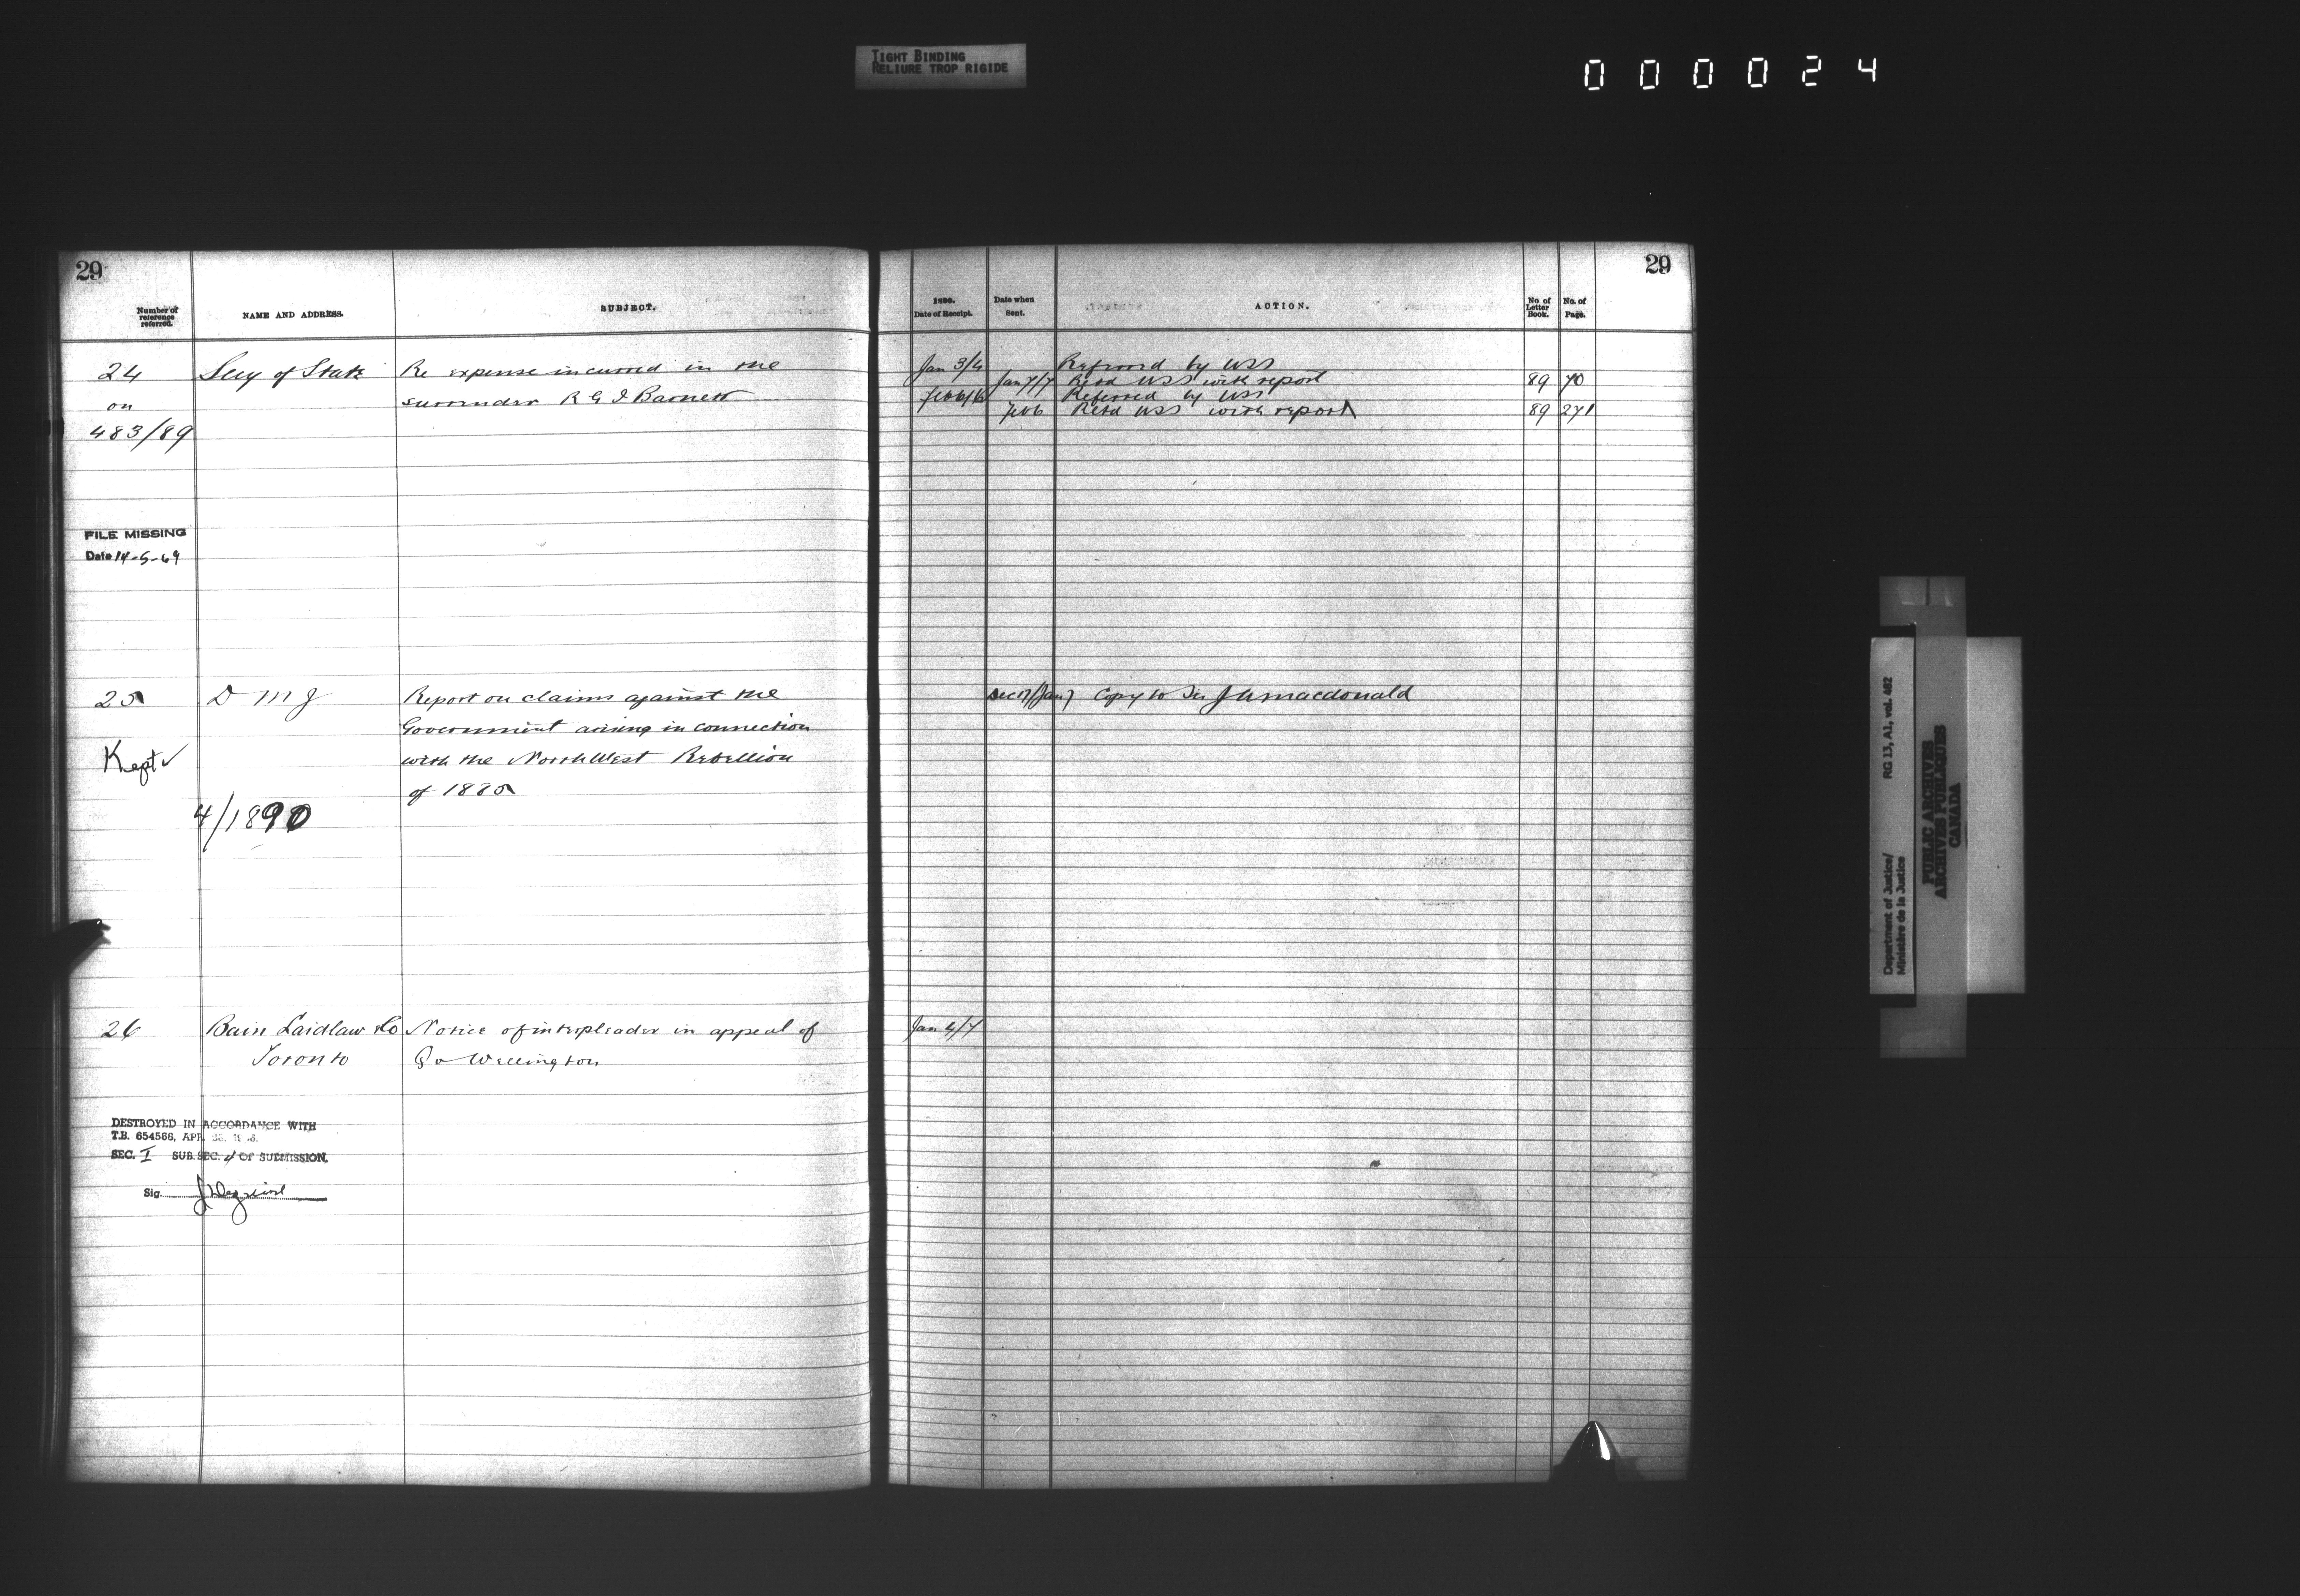 TIGHT BINDING
RELIURE TROP RIGIDE
000024
29
Number of reference referred.
NAME AND ADDRESS.
SUBJECT.
24
on
483/89
Secy of State
Re expense incurred in the
surrender R G I Barnett
FILE MISSING
Date 14-5-69
25
D M J
Report on claims against the
Government arising in connection
with the North West Rebellion
of 1885
Kept ✓
4/1890
26
Bain Laidlaw & Co
Toronto
Notice of interpleader in appeal of
Q v Wellington
DESTROYED IN ACCORDANCE WITH
T.B. 654566, APR.
SEC. I SUB. SEC. 4 OF SUBMISSION.
Sig.
29
1890.
Date of Receipt.
Date when Sent.
ACTION.
No of Letter Book.
No. of Page.
Jan 3/4 Referred by USS
Jan 7/7 Retd USS with report 89 70
Feb 6/6 Referred by USS
Feb 6 Retd USS with report 89 271
Dec 17/(Jan 7) Copy to Sir J A Macdonald
Jan 4/7
RG 13, A1, vol. 482
Department of Justice/
Ministère de la Justice
PUBLIC ARCHIVES
ARCHIVES PUBLIQUES
CANADA